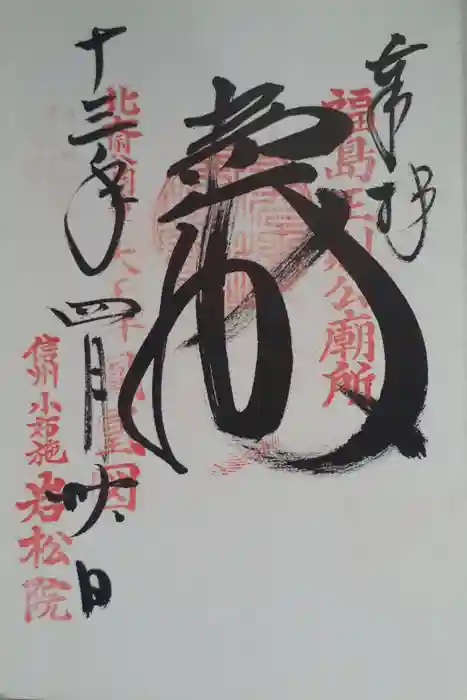 奉拝
福島正則公廟所
北斎翁大天井鳳凰図
十三年四月日
信州小布施
岩松院